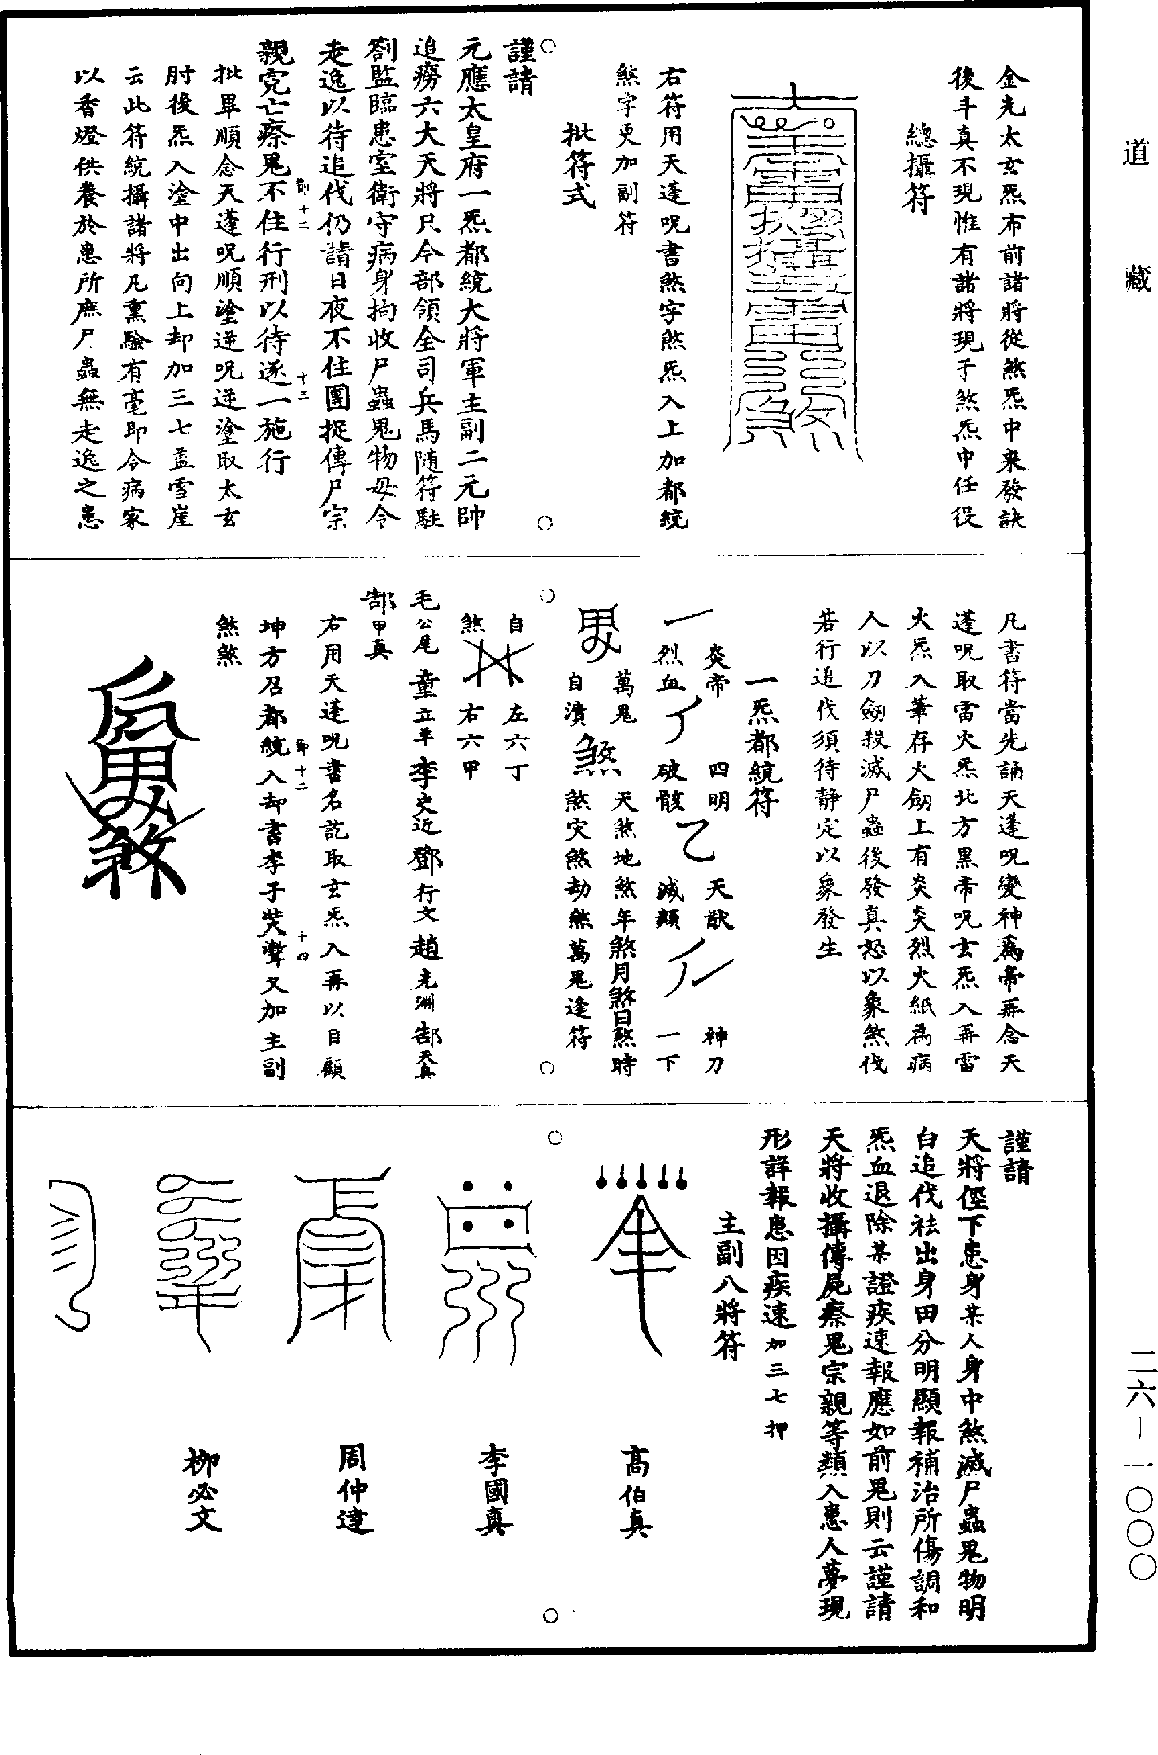 道藏
金光太玄炁布前諸將從煞炁中來發訣
後斗真不現惟有諸將現于煞炁中任役
總攝符
右符用天蓬呪書煞字煞炁入上加都統
煞字更加副符
批符式
謹請
元應太皇府一炁都統大將軍主副二元帥
追癆六大天將只今部領全司兵馬隨符駐
劄監臨患室衛守病身拘收尸蟲鬼物毋令
走逸以待追伐仍請日夜不住圍捉傳尸宗
親究亡瘵鬼不住行刑以待逐一施行
批畢順念天蓬呪順塗逆呪逆塗取太玄
肘後炁入塗中出向上却加三七蓋雪崖
云此符統攝諸將凡熏驗有毫即令病家
以香燈供養於患所庶尸蟲無走逸之患
凡書符當先誦天蓬呪變神為帝再念天
蓬呪取雷火炁北方黑帝呪玄炁入再雷
火炁入筆存火劒上有炎炎烈火紙為病
人以刀劒殺滅尸蟲後發真怒以象煞伐
若行追伐須待靜定以象發生
一炁都統符
炎帝烈血
四明破骸
天猷滅類
神刀一下
萬鬼自潰
天煞地煞年煞月煞日煞時
煞灾煞劫煞萬鬼逢符
自煞
左六丁
右六甲
毛公尾 童立平 李史近 鄧行文 趙光渊 郝天真
郝甲真
右用天蓬呪書名訖取玄炁入再以目顧
坤方召都統入却書李子笑聲又加主副
煞煞
謹請
天將徑下患身某人身中煞滅尸蟲鬼物明
白追伐祛出身田分明顯報補治所傷調和
炁血退除某證疾速報應如前鬼則云謹請
天將收攝傳屍瘵鬼宗親等類入患人夢現
形詳報患因疾速加三七押
主副八將符
高伯真
李國真
周仲達
柳必文
二六－一〇〇〇